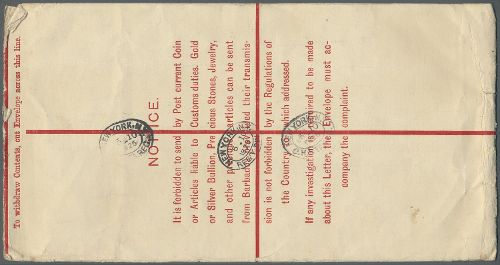 To withdraw Contents, cut Envelope across this line.
NOTICE.
It is forbidden to send by Post current Coin
or Articles liable to Customs duties. Gold
or Silver Bullion, Precious Stones, Jewelry,
and other precious articles can be sent
from Barbados if their transmis-
sion is not forbidden by the Regulations of
the Country to which addressed.
If any investigation is desired to be made
about this Letter, the Envelope must ac-
company the complaint.
NEW YORK
NEW YORK